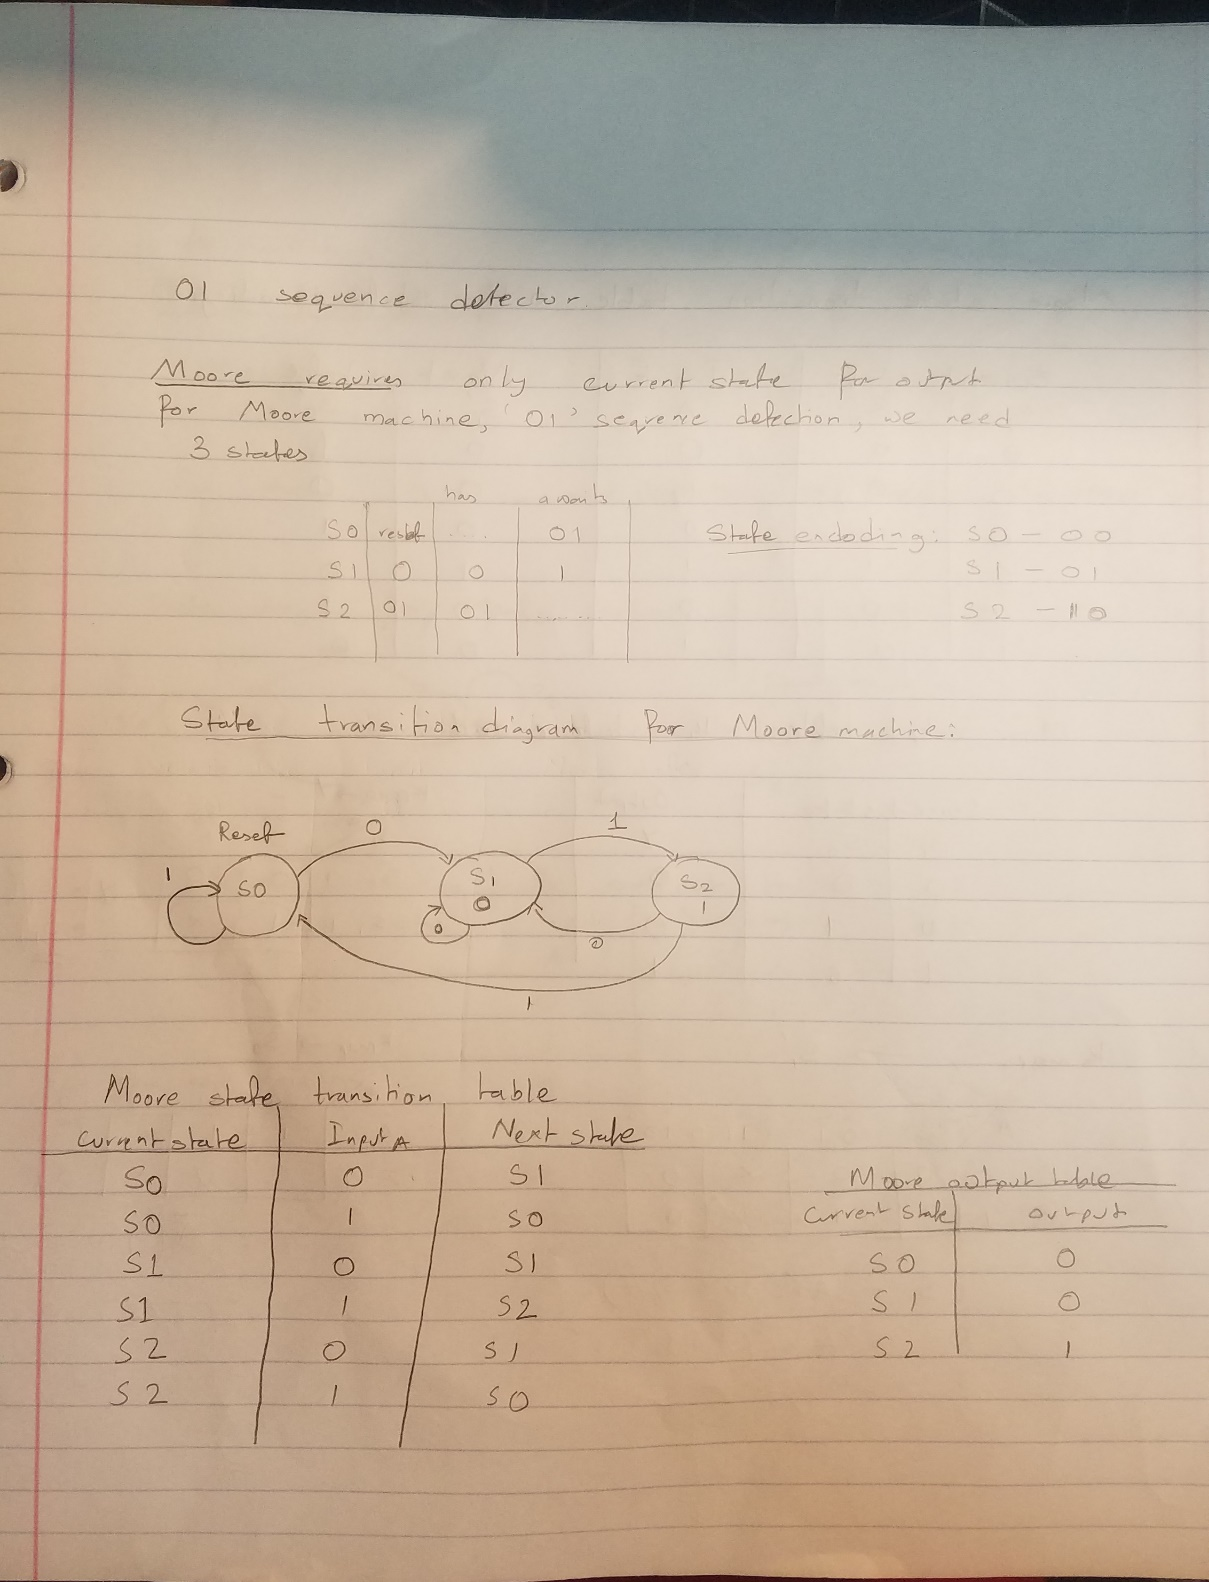 01 sequence detector.
Moore requires only current state for output
For Moore machine, '01' sequence detection, we need
3 states
has wants
S0 reset ..... 01
S1 0 0 1
S2 01 01 ........
State endoding: S0 - 00
S1 - 01
S2 - 10
State transition diagram for Moore machine:
Reset 0 1
1 S0 S1 S2
0 1
0 0
1
Moore state transition table
Current state Input A Next state
S0 0 S1
S0 1 S0
S1 0 S1
S1 1 S2
S2 0 S1
S2 1 S0
Moore output table
Current State output
S0 0
S1 0
S2 1